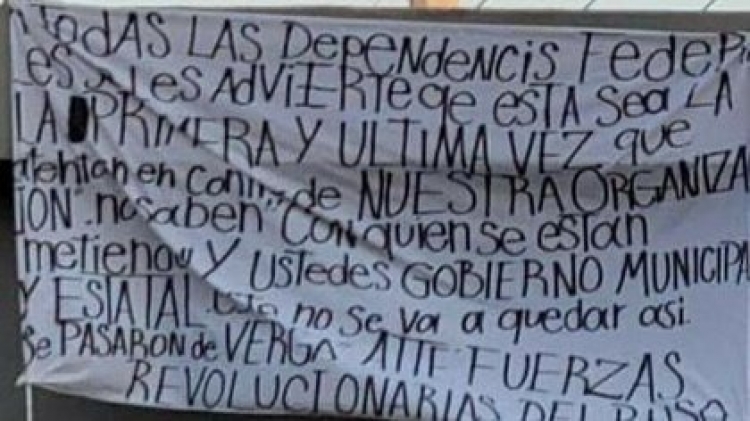 TODAS LAS DEPENDENCIS FEDERA
ES SE LES ADVIERTE QE ESTA SEA LA
LA PRIMERA Y ULTIMA VEZ que
atentan en contra de NUESTRA ORGANIZA
ION". no saben "Con quien se estan
metiendo y USTEDES GOBIERNO MUNICIPA
Y ESTATAL. Esto no se va a quedar asi.
Se PASARON de VERGA" ATTE FUERZAS
REVOLUCIONARIAS DEL RUSO